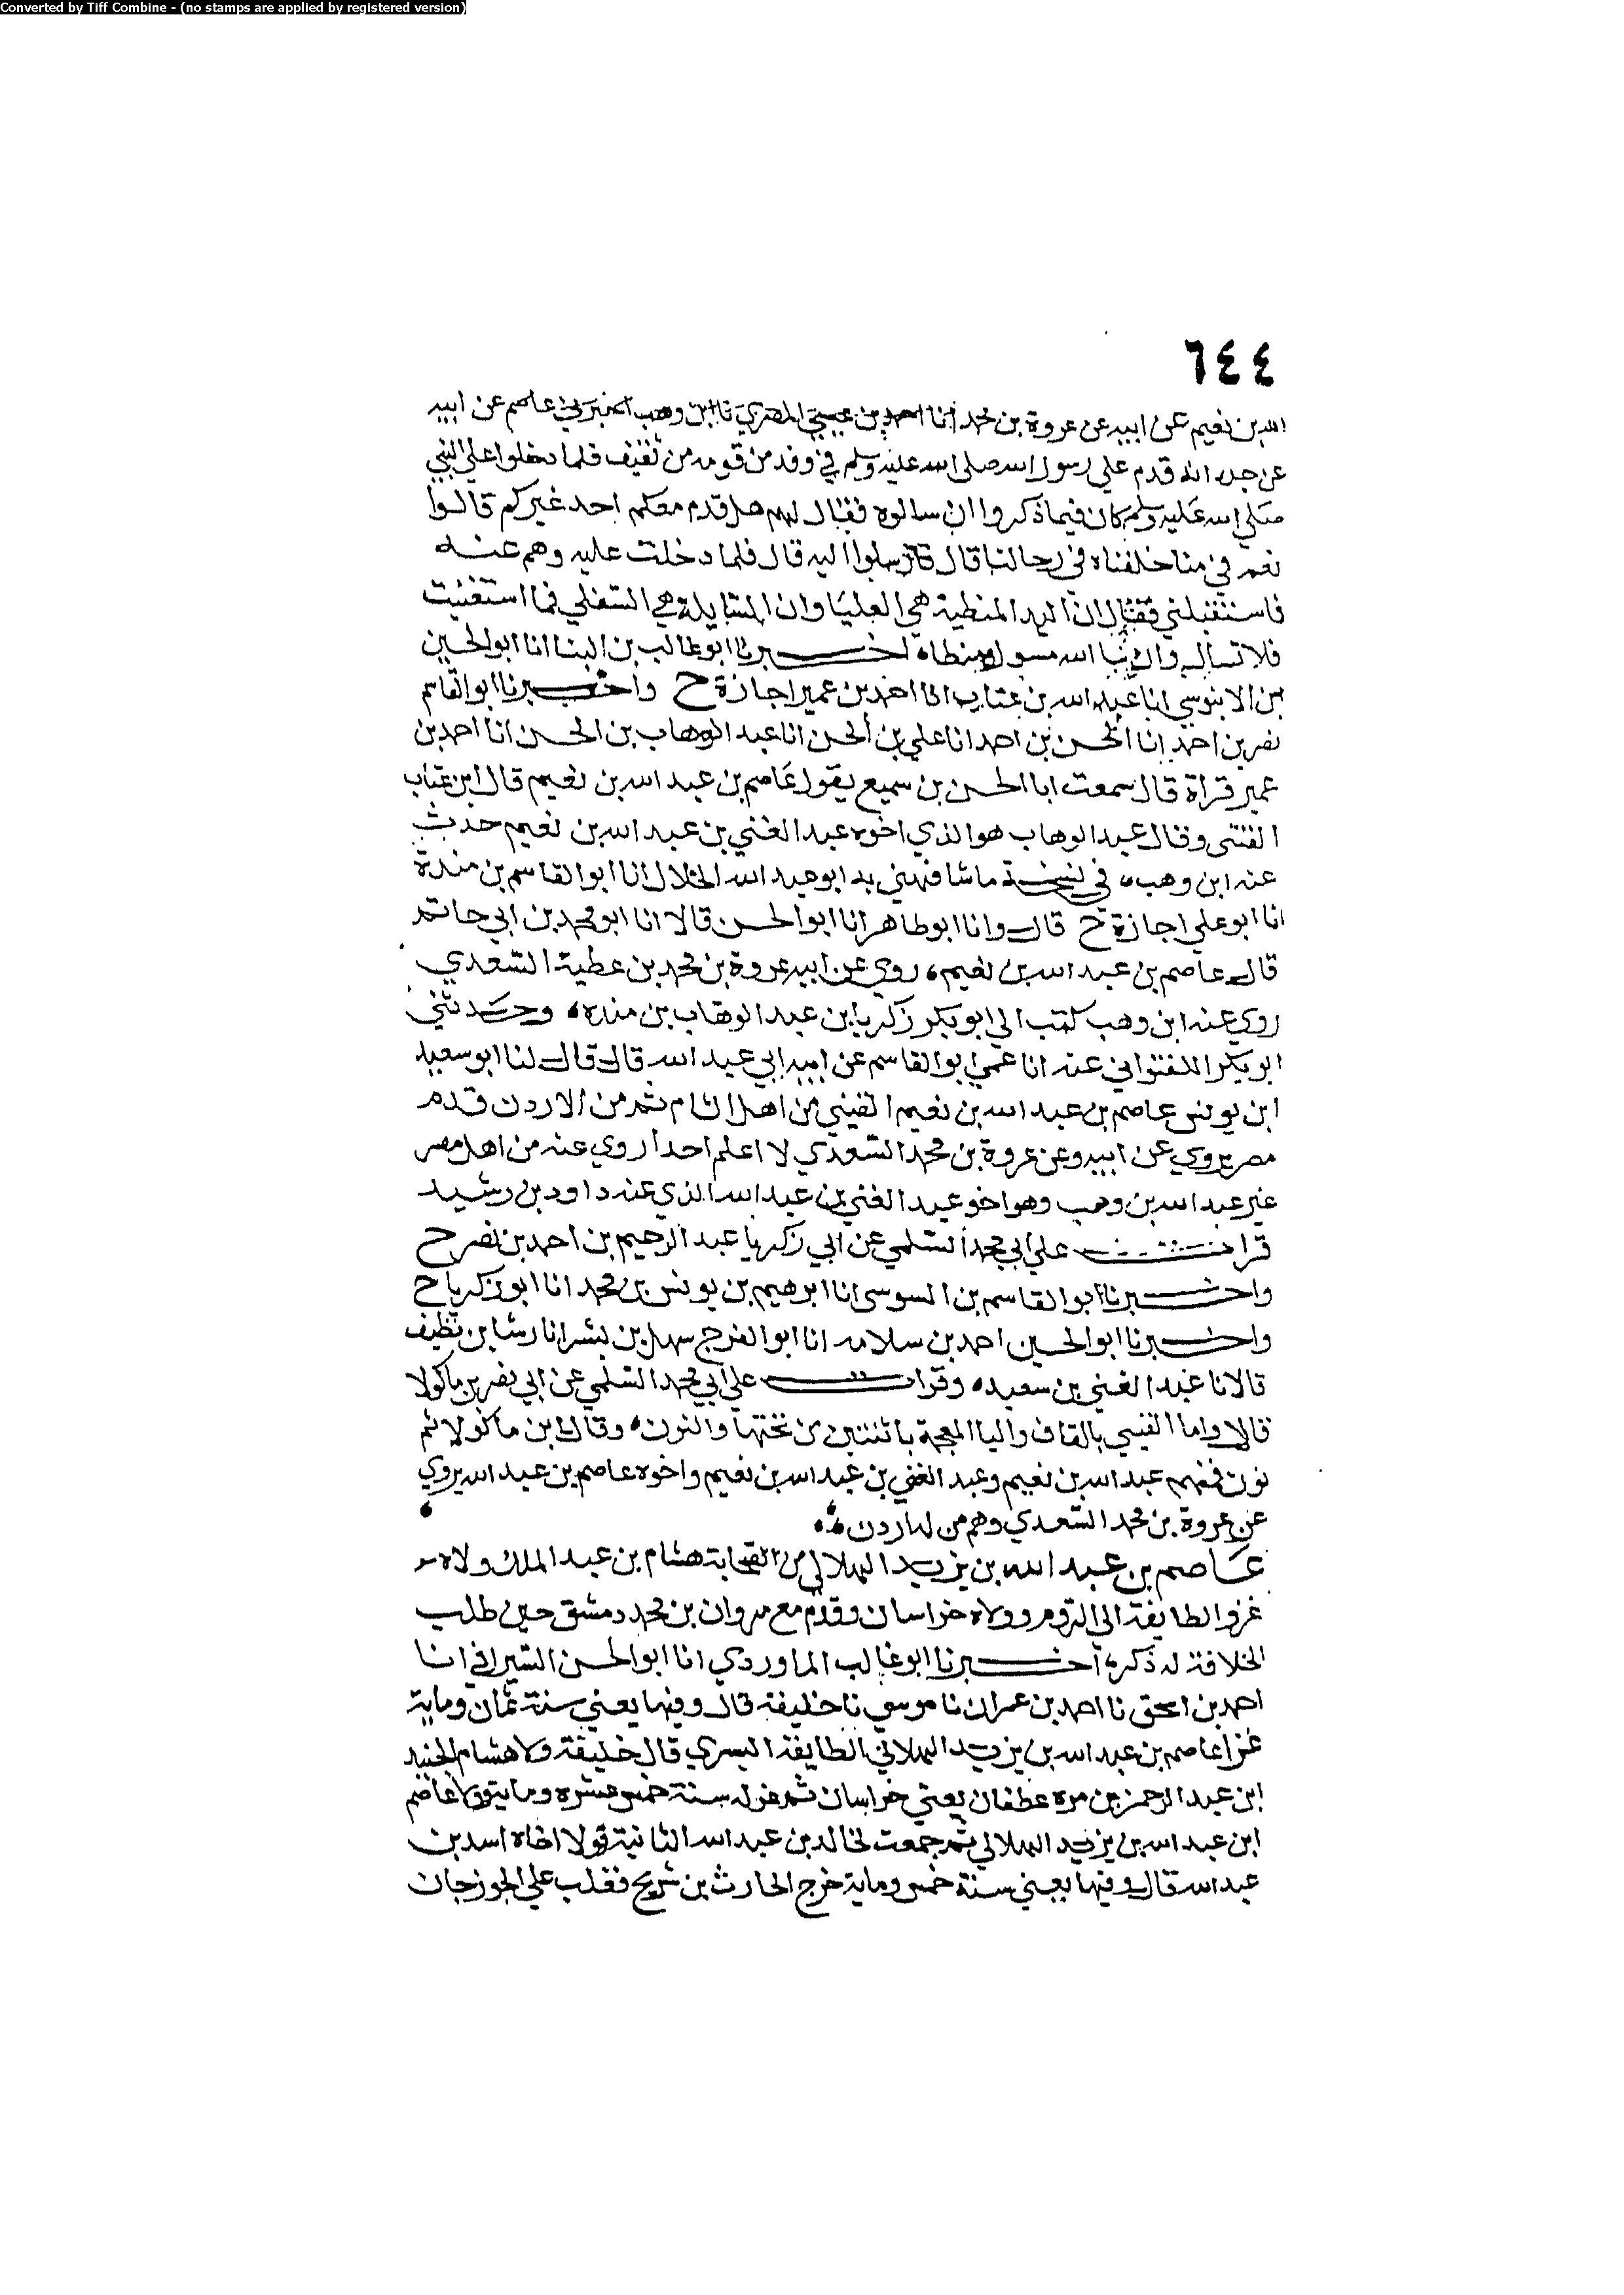 Converted by Tiff Combine - (no stamps are applied by registered version)
٦٤٤
الله بن نعيم عن ابيه عن عروة بن محمد انا احمد بن عيسى المصري نا ابن وهب اخبرني عاصم عن ابيه
عن جده انه قدم علي رسول الله صلى الله عليه وسلم في وفد من قومه من ثقيف فلما دخلوا علي النبي
صلي الله عليه وسلم كان فيما ذكروا ان سالوه فقال لهم هل قدم معكم احد غيركم قالوا
نعم فتي منا خلفناه في رحالنا قال فارسلوا اليه قال فلما دخلت عليه وهم عنده
فاستقبلني فقال ان اليد المنطية هي العليا وان السايلة هي السفلي فما استغنيت
فلا تسال وان مال الله مسول ومنطاه اخبرنا ابو غالب بن البنا انا ابو الحسين
بن الابنوسي انا عبد الله بن عتاب انا احمد بن عمير اجازة ح واخبرنا ابو القاسم
نصر بن احمد انا الحسن بن احمد انا علي بن الحسن انا عبد الوهاب بن الحسن انا احمد بن
عمير قراة قال سمعت ابا الحسن بن سميع يقول عاصم بن عبد الله بن نعيم قال ابن عتاب
القيني وقال عبد الوهاب هو الذي اخوه عبد الغني بن عبد الله بن نعيم حدث
عنه ابن وهب، في نسخة ما شافهني به ابو عبد الله الخلال انا ابو القاسم بن مندة
انا ابو علي اجازة ح قال وانا ابو طاهر انا ابو الحسن قالا انا ابو محمد بن ابي حاتم
قال عاصم بن عبد الله بن نعيم، روي عن ابيه عروة بن محمد بن عطية السعدي
روي عنه ابن وهب كتب الي ابو بكر زكريا ابن عبد الوهاب بن مندة، وحدثني
ابو بكر اللفتواني عنه انا عمي ابو القاسم عن ابيه ابي عبد الله قال قال لنا ابو سعيد
ابن يونس عاصم بن عبد الله بن نعيم القيني من اهل الشام ثم من الاردن قدم
مصر يروي عن ابيه وعن عروة بن محمد السعدي لا اعلم احدا روي عنه من اهل مصر
غير عبد الله بن وهب وهو اخو عبد الغني بن عبد الله الذي عنه داود بن رشيد
قرات علي ابي محمد السلمي عن ابي زكريا عبد الرحيم بن احمد بن نصر ح
واخبرنا ابو القاسم بن السوسي انا ابرهيم بن يونس بن محمد انا ابو زكريا ح
واخبرنا ابو الحسين احمد بن سلامه انا ابو الفرج سهل بن بشر انا رشا بن نظيف
قالا نا عبد الغني بن سعيد، وقرات علي ابي محمد السلمي عن ابي نصر بن ماكولا
قالا واما القيني بالقاف واليا المعجمة باثنتين من تحتها والنون، وقال ابن ماكولا ثم
نون فمنهم عبد الله بن نعيم وعبد الغني بن عبد الله بن نعيم واخوه عاصم بن عبد الله يروي
عن عروة بن محمد السعدي وهم من الاردن
عاصم بن عبد الله بن يزيد الهلالي من الصحابة هشام بن عبد الملك ولاه
غزو الطايفة الي الروم وولاه خراسان وقدم مع مروان بن محمد دمشق حين طلب
الخلافة له ذكر، اخبرنا ابو غالب الماوردي انا ابو الحسن السيرافي انا
احمد بن اسحق نا احمد بن عمران نا موسي نا خليفة قال وفيها يعني سنة ثمان وماية
غزا عاصم بن عبد الله بن يزيد الهلالي الطايفة اليسري قال خليفة ولا هشام الجنيد
ابن عبد الرحمن بن مره غطفان يعني خراسان ثم عزله سنة خمس عشره وماية وولا عاصم
ابن عبد الله بن يزيد الهلالي ثم جمعت لخالد بن عبد الله الثانية فولا اخاه اسد بن
عبد الله قال وفيها يعني سنة خمس وماية خرج الحارث بن شريح فغلب علي الجوزجان